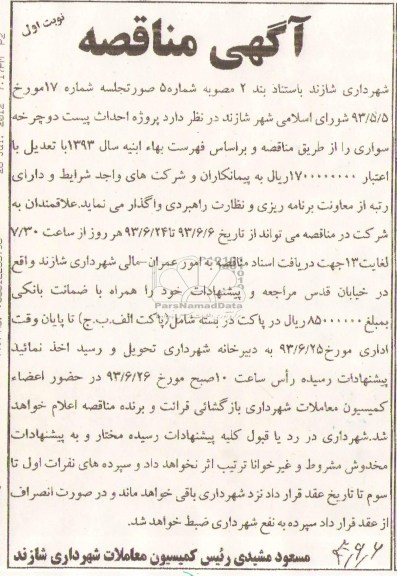 نوبت اول
آگهی مناقصه
شهرداری شازند باستناد بند ۲ مصوبه شماره۵ صورتجلسه شماره ۱۷مورخ
۹۳/۵/۵ شورای اسلامی شهر شازند در نظر دارد پروژه احداث پیست دوچرخه
سواری را از طریق مناقصه و براساس فهرست بهاء ابنیه سال ۱۳۹۳با تعدیل با
اعتبار ۱۷۰۰۰۰۰۰۰۰ریال به پیمانکاران و شرکت های واجد شرایط و دارای
رتبه از معاونت برنامه ریزی و نظارت راهبردی واگذار می نماید.علاقمندان به
شرکت در مناقصه می تواند از تاریخ ۹۳/۶/۶ تا۹۳/۶/۲۴ هر روز از ساعت ۷/۳۰
لغایت۱۳جهت دریافت اسناد مناقصه به امور عمران-مالی شهرداری شازند واقع
در خیابان قدس مراجعه و پیشنهادات خود را همراه با ضمانت بانکی
ParsNamadData
بمبلغ ۸۵۰۰۰۰۰۰ریال در پاکت در بسته شامل(پاکت الف.ب.ج) تا پایان وقت
اداری مورخ۹۳/۶/۲۵ به دبیرخانه شهرداری تحویل و رسید اخذ نمائید
پیشنهادات رسیده رأس ساعت ۱۰صبح مورخ ۹۳/۶/۲۶ در حضور اعضاء
کمیسیون معاملات شهرداری بازگشائی قرائت و برنده مناقصه اعلام خواهد
شد.شهرداری در رد یا قبول کلیه پیشنهادات رسیده مختار و به پیشنهادات
مخدوش مشروط و غیرخوانا ترتیب اثر نخواهد داد و سپرده های نفرات اول تا
سوم تا تاریخ عقد قرار داد نزد شهرداری باقی خواهد ماند و در صورت انصراف
از عقد قرار داد سپرده به نفع شهرداری ضبط خواهد شد.
مسعود مشیدی رئیس کمیسیون معاملات شهرداری شازند